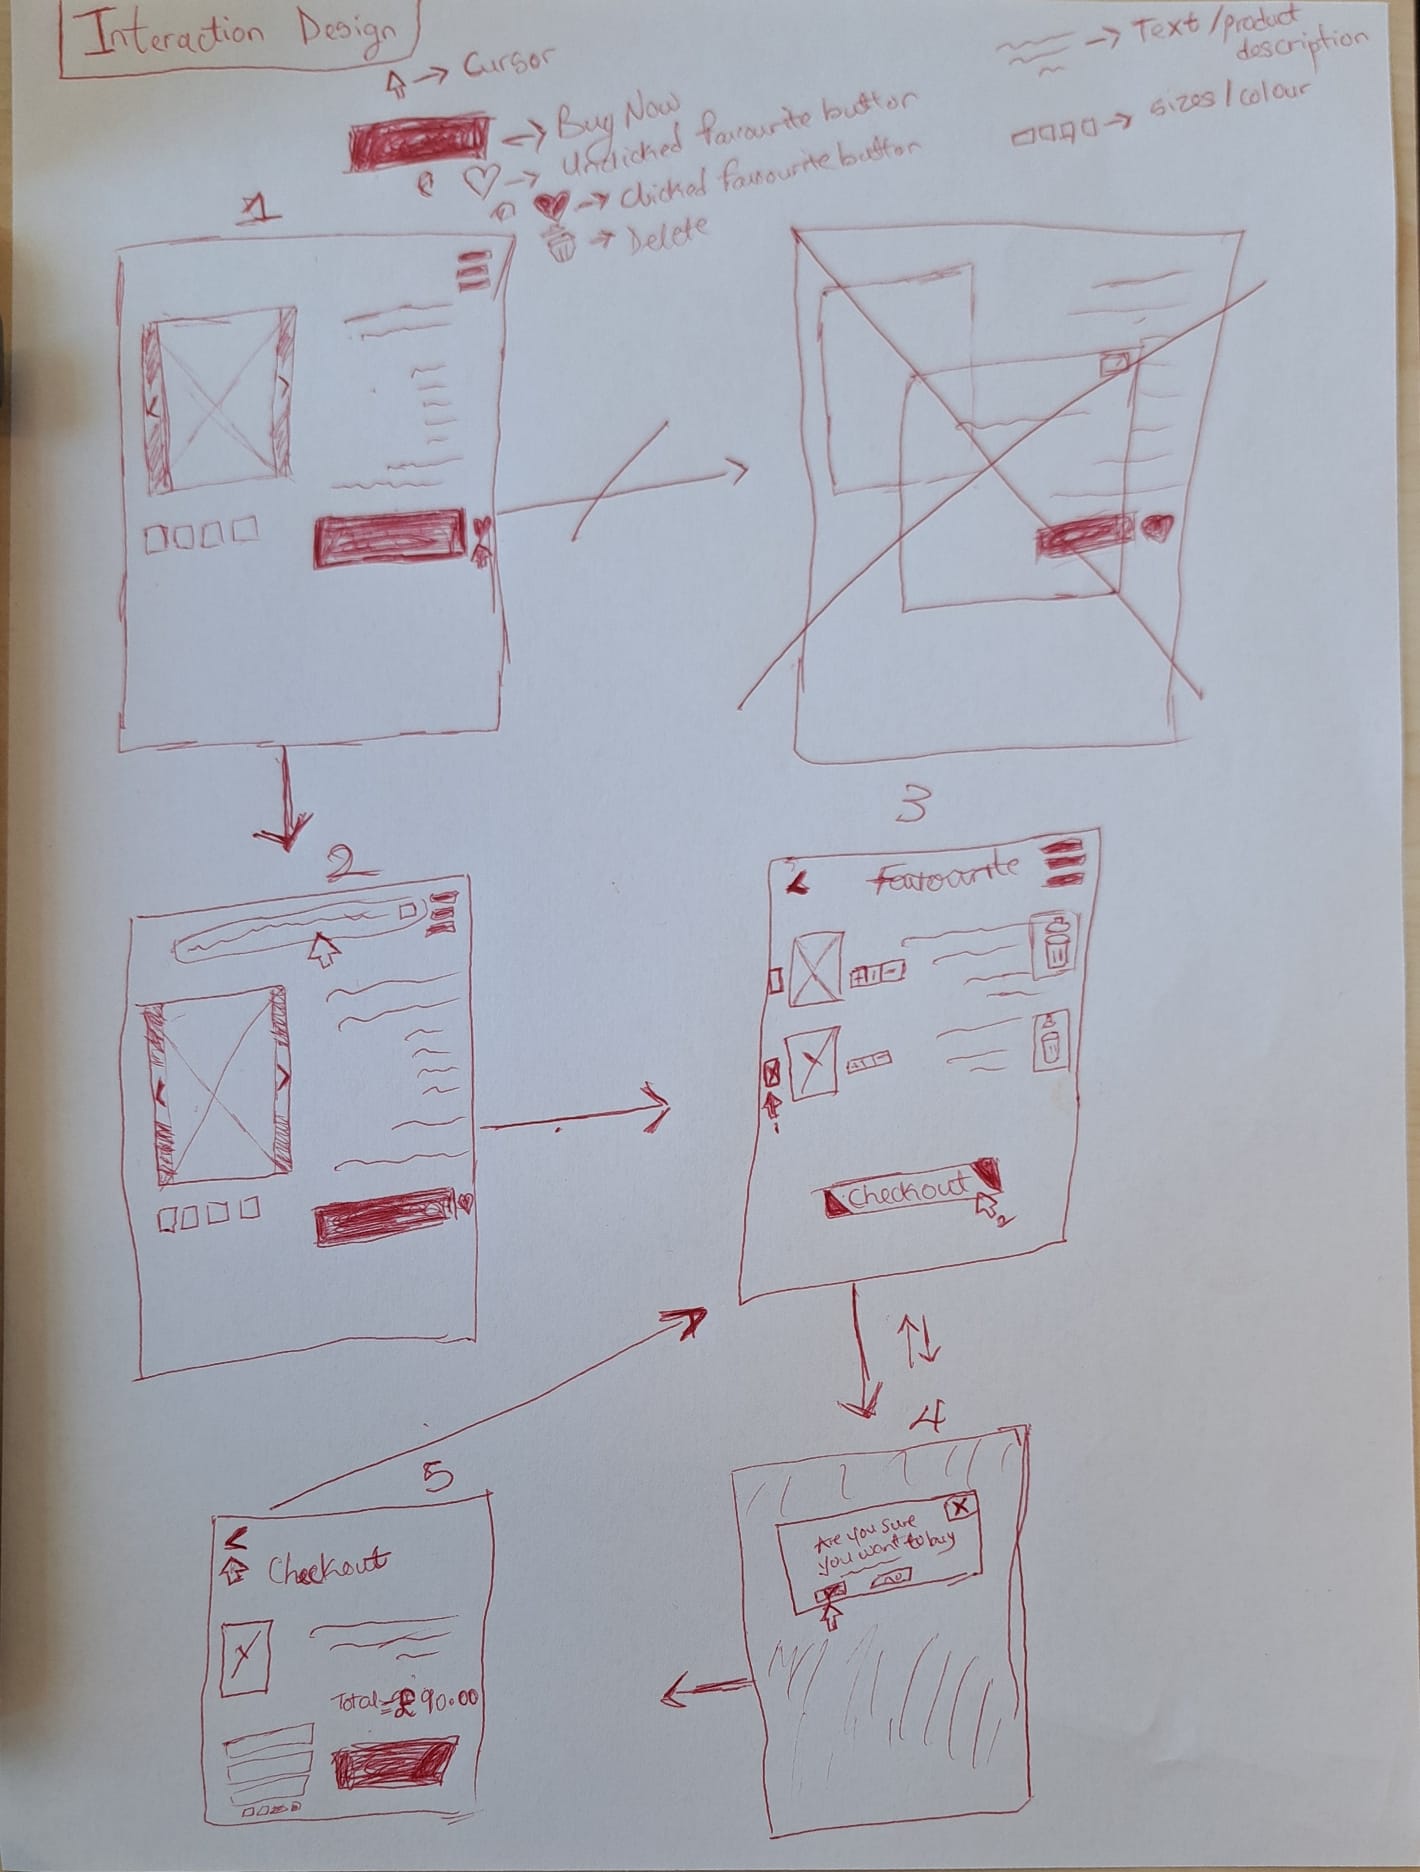 Interaction Design
→ Cursor
→ Buy Now
→ Unclicked favourite button
→ Clicked favourite button
→ Delete
→ Text/product
description
→ sizes/colour
1
2
3
Favourite
Checkout
2
4
Are you sure
you want to buy
NO
5
Checkout
Total = £90.00